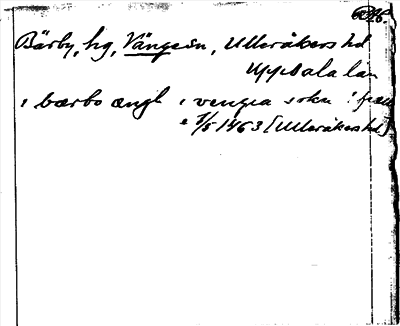 Bärby, hg, Vänge sn, Ulleråkers hd
Uppsala län
i bærbo ængl i vengia sokn
1/5 1463 [Ulleråkers hd]